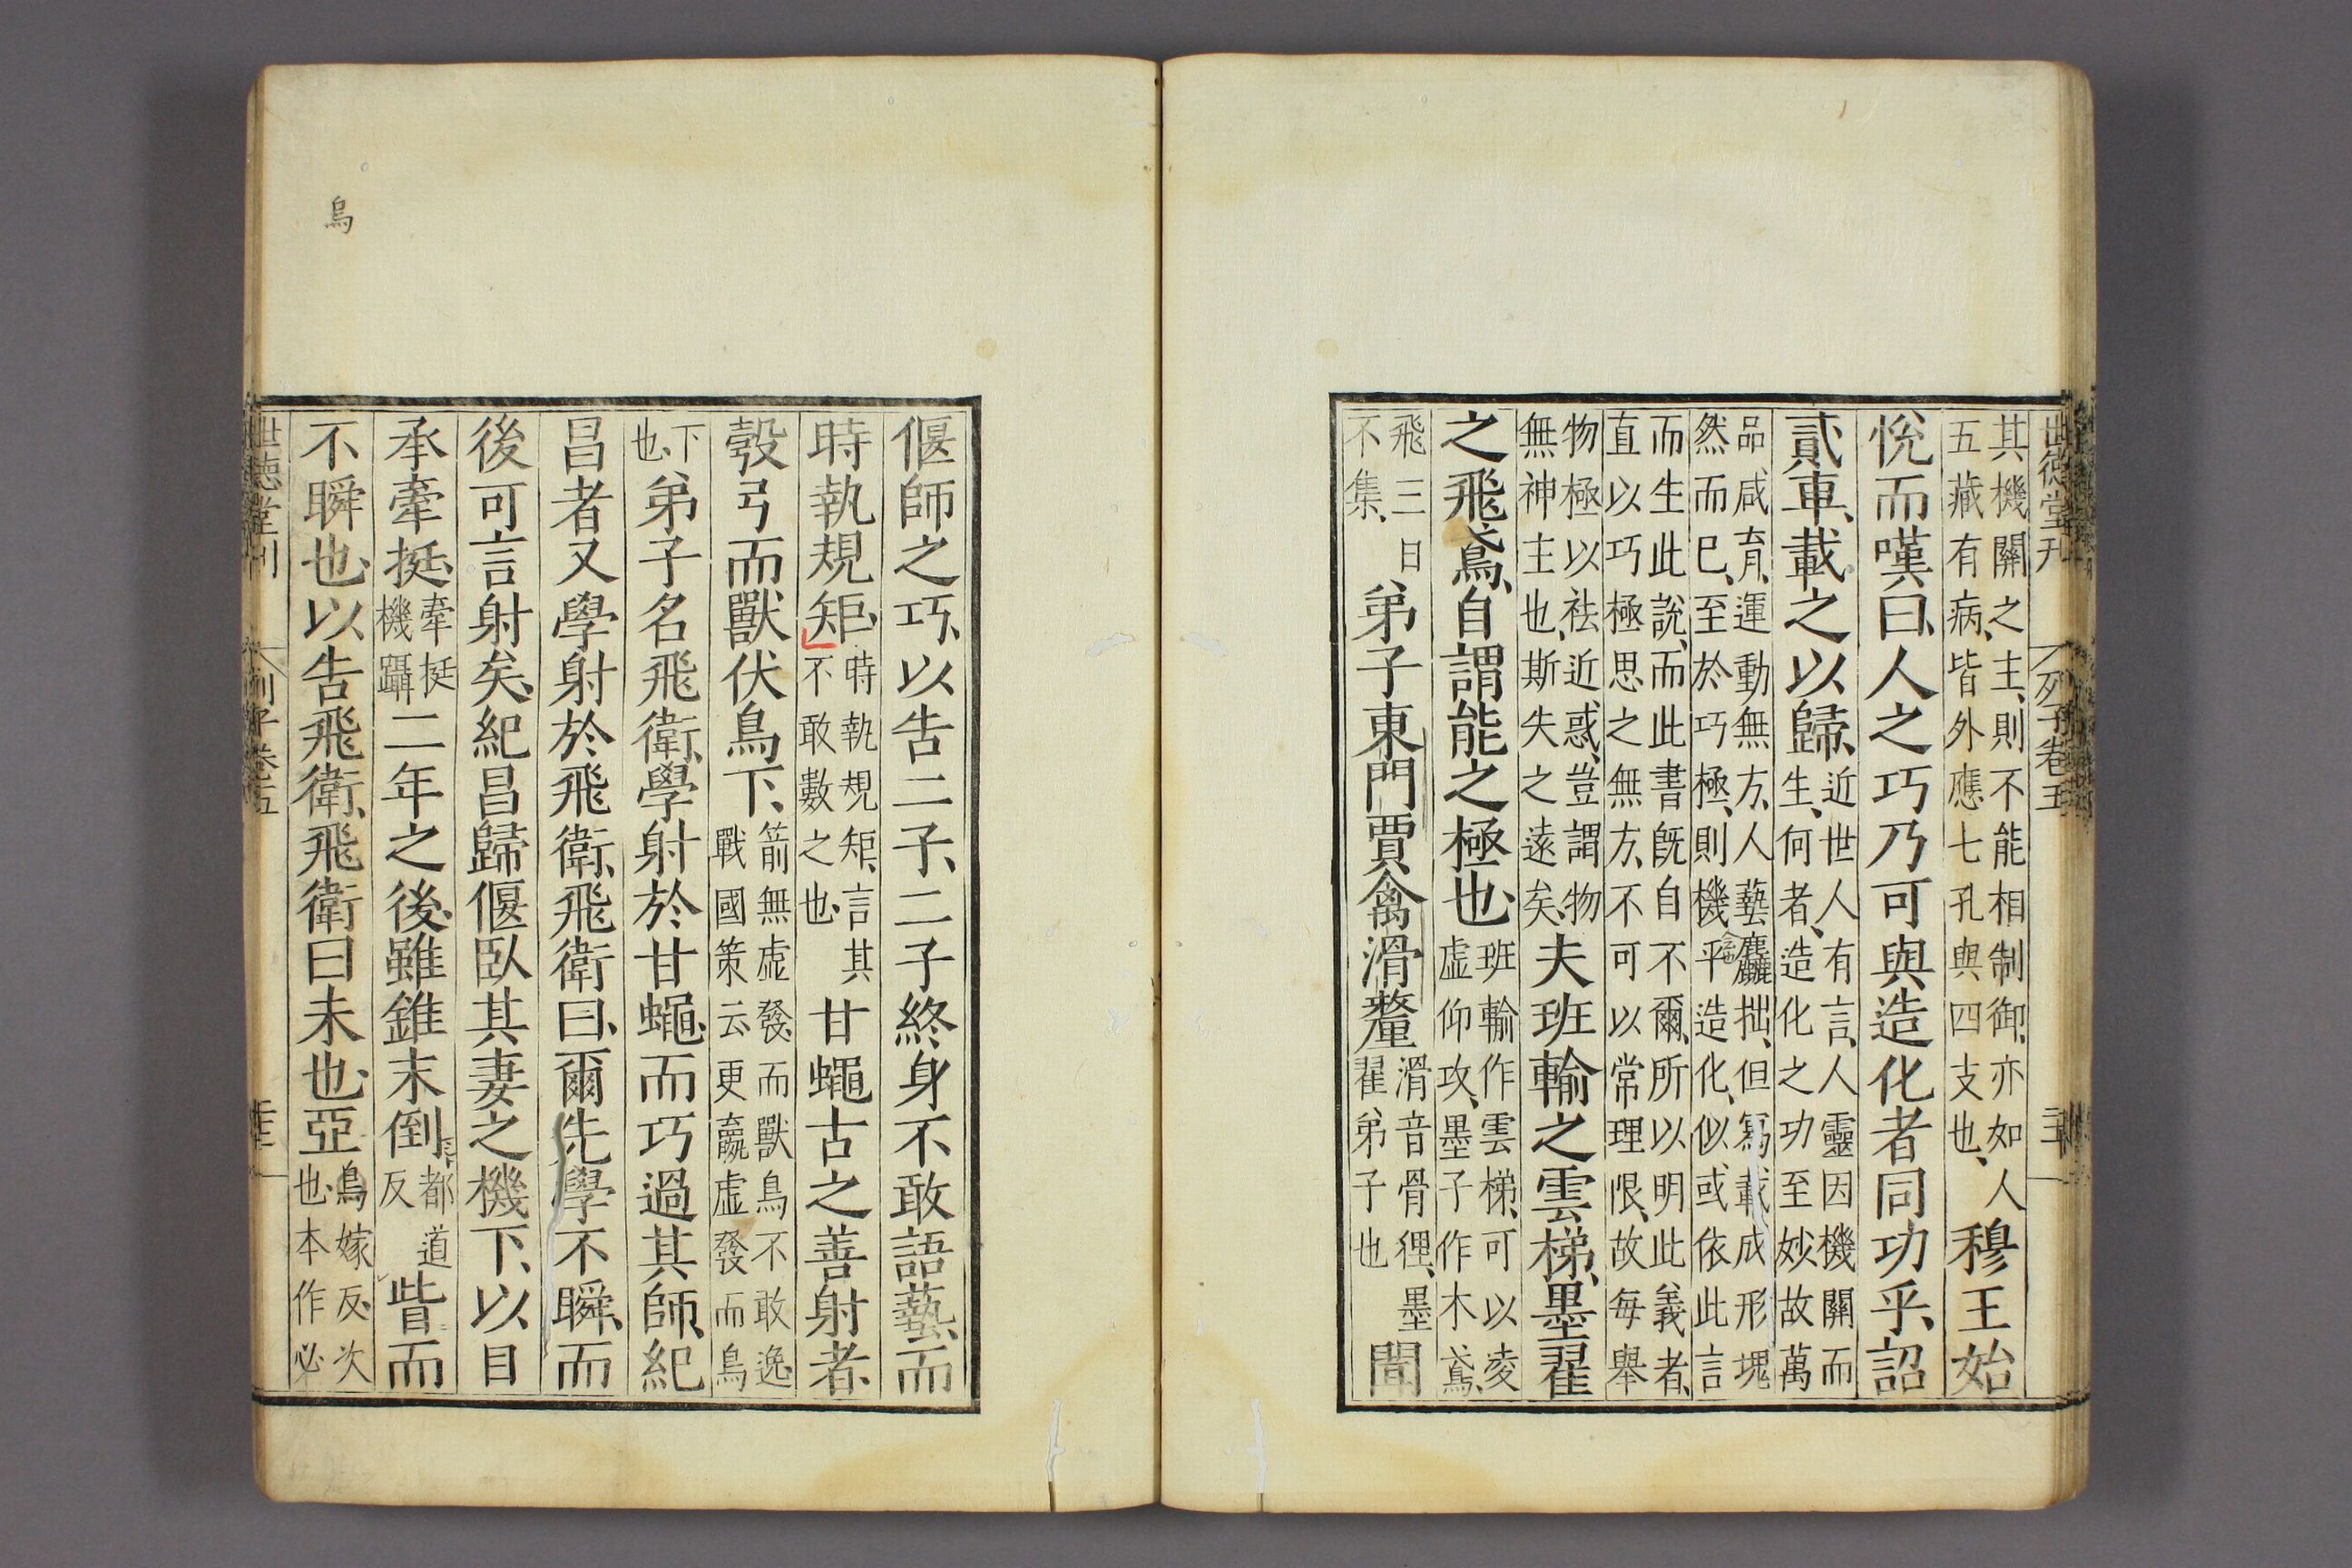 世德堂刊 列子卷五
其機關之主、則不能相制御、亦如人
五藏有病、皆外應七孔與四支也、
穆王始
悅而嘆曰、人之巧乃可與造化者同功乎、詔
貳車、載之以歸、
近世人有言、人靈因機關而
生、何者、造化之功至妙故萬
品咸育、運動無方、人藝麤拙、但寫載成形塊
然而已、至於巧極、則機乎造化、似或依此言
而生此說、而此書既自不爾、所以明此義者、
直以巧極思之無方、不可以常理限、故每舉
物極以祛近惑、豈謂物
無神主也、斯失之遠矣、
夫班輸之雲梯、墨翟
之飛鳶、自謂能之極也、
班輸作雲梯、可以凌
虛仰攻、墨子作木鳶、
飛三日
不集、
弟子東門賈、禽滑釐
滑音骨狸、墨
翟弟子也
聞
偃師之巧、以告二子、二子終身不敢語藝、而
時執規矩、
時執規矩、言其
不敢數之也、
甘蠅古之善射者、
彀弓而獸伏鳥下、
箭無虛發、而獸鳥不敢逸
戰國策云、更羸虛發而鳥
下
也、
弟子名飛衛、學射於甘蠅、而巧過其師、紀
昌者又學射於飛衛、飛衛曰、爾先學不瞬、而
後可言射矣、紀昌歸偃臥其妻之機下、以目
承牽挺、
牽挺
機躡
二年之後、雖錐末倒
都道
反
眥而
不瞬也、以告飛衛、飛衛曰未也、亞
烏嫁反、次
也、本作必
世德堂刊 列子卷五
烏